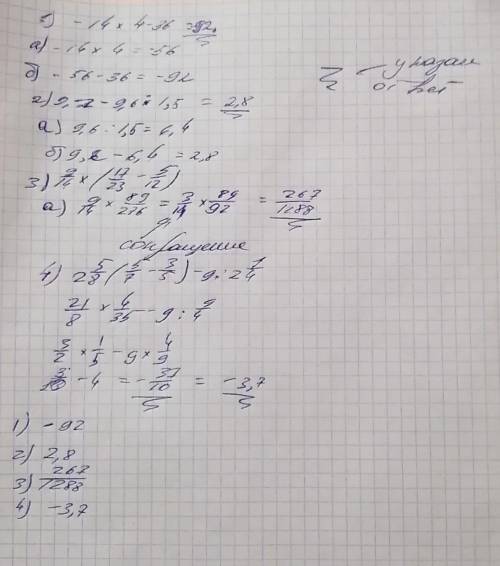 1) -14 × 4 - 36 = -92
а) -14 × 4 = -56
б) -56 - 36 = -92
указан
ответ
2) 9,2 - 9,6 : 1,5 = 2,8
а) 9,6 : 1,5 = 6,4
б) 9,2 - 6,4 = 2,8
3) 9/14 × (17/23 - 5/12)
а) 9/14 × 89/276 = 3/14 × 89/92 = 267/1288
сокращение
4) 2 5/8 (5/7 - 3/5) - 9 : 2 1/4
21/8 × 4/35 - 9 : 9/4
3/2 × 1/5 - 9 × 4/9
3/10 - 4 = -37/10 = -3,7
1) -92
2) 2,8
3) 267/1288
4) -3,7